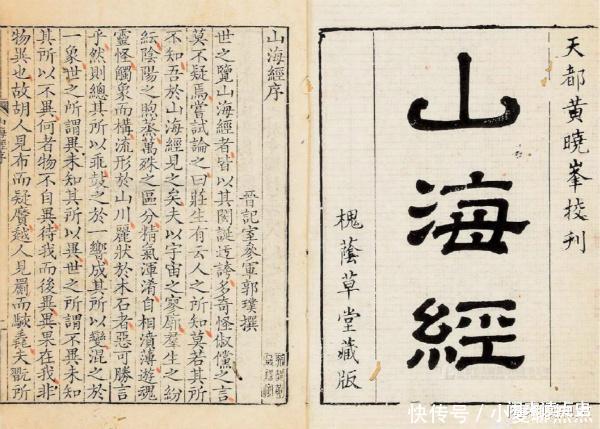 天都黃曉峯挍刊
山海經
槐蔭草堂藏版
山海經序
晉記室參軍郭璞撰
世之覽山海經者皆以其閎誕迂誇多奇怪俶儻之言
莫不疑焉嘗試論之曰莊生有云人之所知莫若其所
不知吾於山海經見之矣夫以宇宙之寥廓羣生之紛
紜陰陽之煦蒸萬殊之區分精氣渾淆自相濆薄遊魂
靈怪觸象而構流形於山川麗狀於木石者惡可勝言
乎然則總其所以乖鼓之於一響成其所以變混之於
一象世之所謂異未知其所以異世之所謂不異未知
其所以不異何者物不自異待我而後異異果在我非
物異也故胡人見布而疑黂越人見罽而駭毳夫翫所
快传号